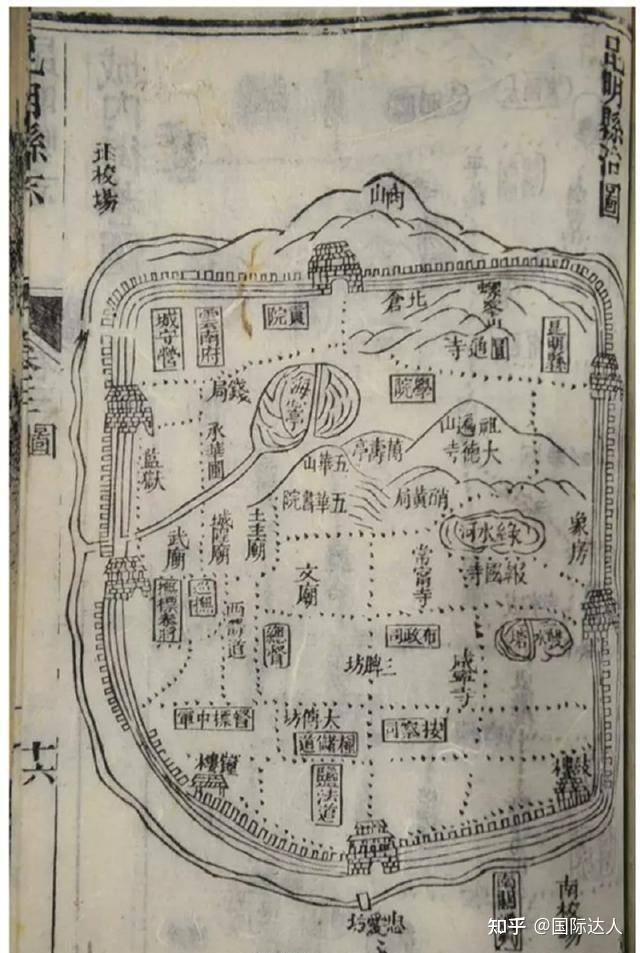 昆明縣治圖
北校場
商山
貢院
北倉
螺峯山
圓通寺
昆明縣
雲南府
城守營
錢局
海心亭
學院
承華圃
監獄
祖遍山
大德寺
萬壽亭
五華山
五華書院
硝黃局
綠水河
報國寺
象房
土主廟
城隍廟
武廟
文廟
常寧寺
巡撫
撫標參將
總督
布政司
三牌坊
咸寧寺
督標中軍
大傅坊
糧儲道
按察司
鹽法道
鐘樓
鼓樓
忠愛坊
南校場
十六
知乎 @国际达人